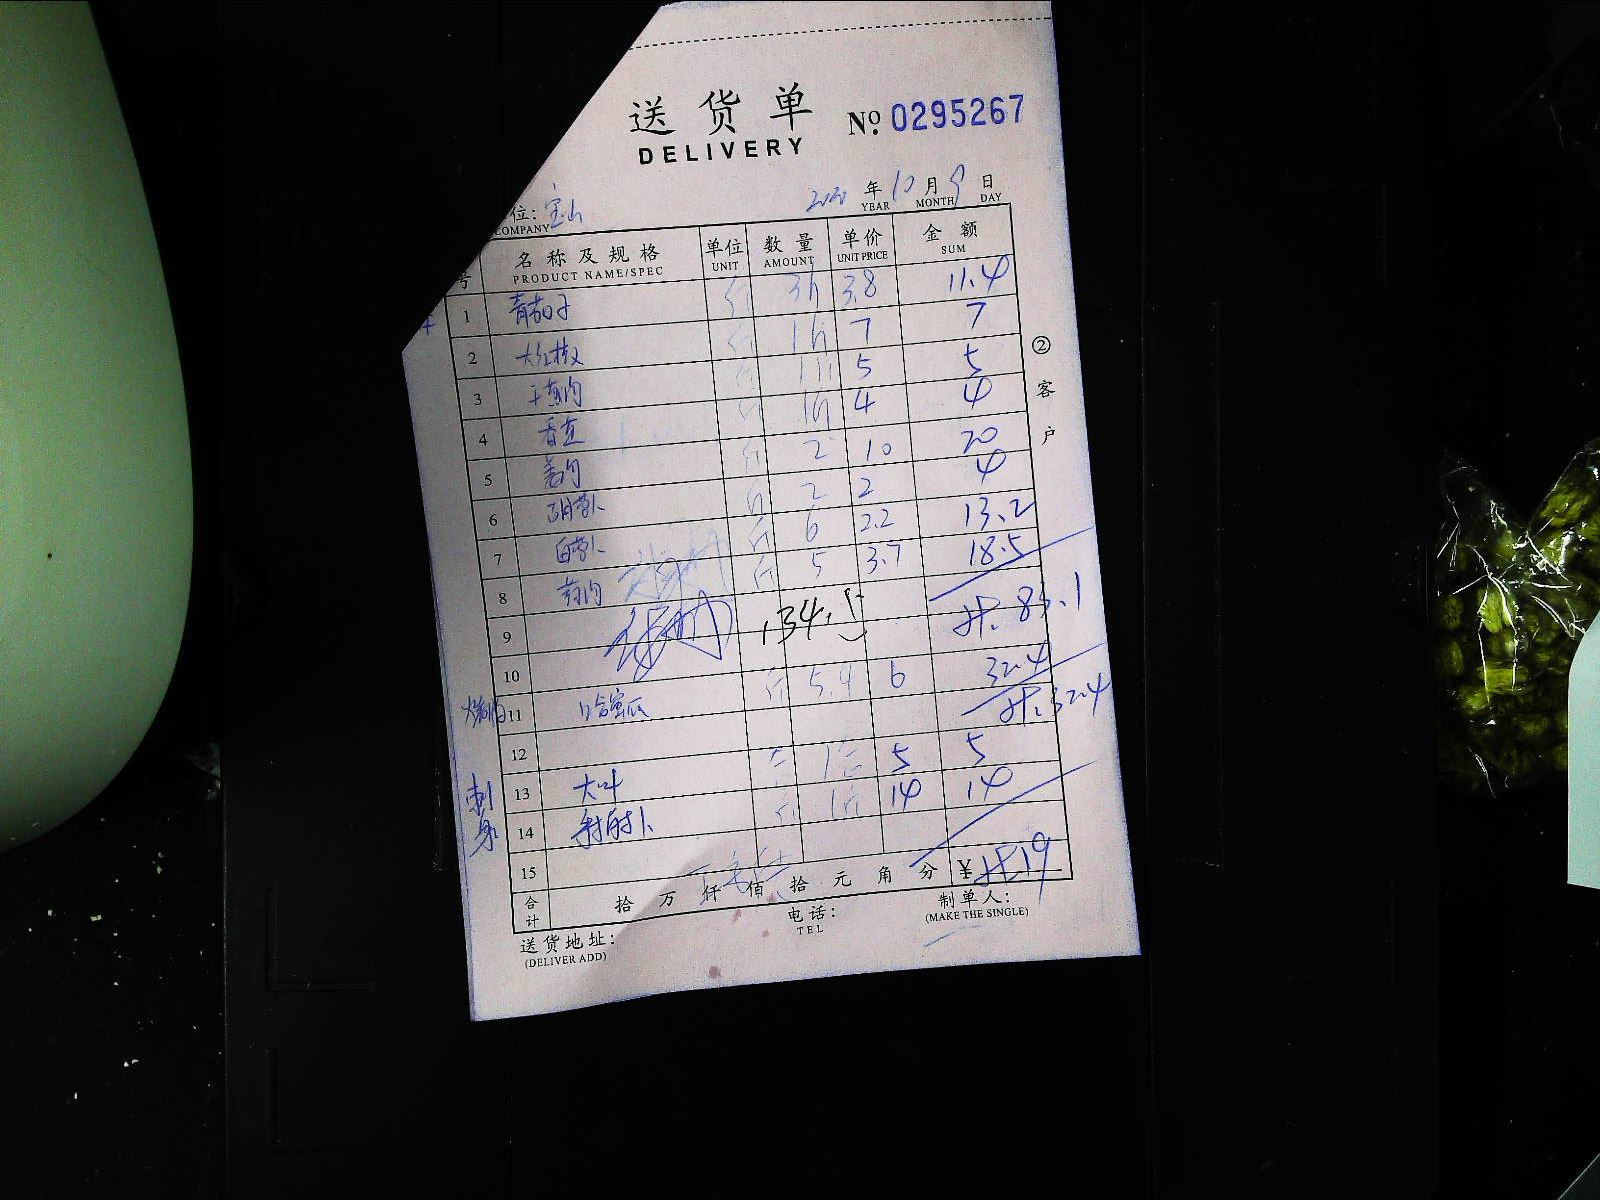 送货单 № 0295267
DELIVERY
位: 宝山 2020 年 10 月 9 日
COMPANY YEAR MONTH DAY
号 名称及规格 单位 数量 单价 金额
PRODUCT NAME/SPEC UNIT AMOUNT UNIT PRICE SUM
1 青茄子 斤 3斤 3.8 11.4
2 大红椒 斤 1斤 7 7
3 斤 5 5
4 斤 1斤 4 4
5 姜肉 斤 2 10 20
6 胡萝卜 斤 2 2 4
7 白萝卜 斤 6 2.2 13.2
8 斤 5 3.7 18.5
9 134.5 共.83.1
10
11 哈蜜瓜 斤 5.4 6 32.4
共.32.4
12
刺身
13 大叶 5 5
14 斤 1斤 14 14
15
合计 拾 万 仟 佰 拾 元 角 分 ¥ 共19
送货地址: 电话: 制单人:
(DELIVER ADD) TEL (MAKE THE SINGLE)
② 客户